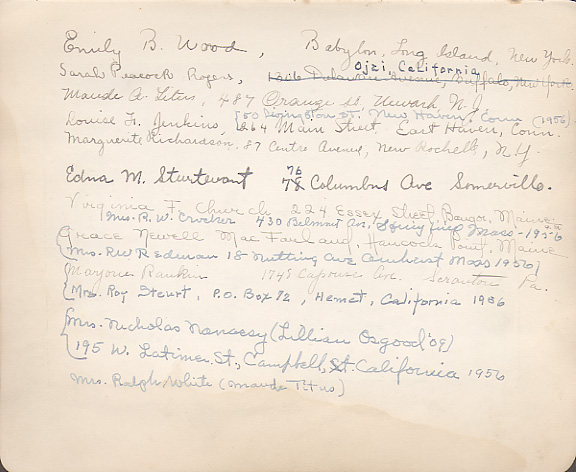 Emily B. Wood, Babylon, Long Island, New York.
Ojai, California
Sarah Peacock Rogers, 1306 Delaware Avenue, Buffalo, New York.
Maude A. 487 Orange St, Newark N.J.
New Haven, Conn (1956)
Louise F. Jenkins, 264 Main Street, East Haven, Conn.
Marguerite Richardson, 87 Centre Avenue, New Rochelle, N.Y.
76
Edna M. Sturtevant 78 Columbus Ave Somerville.
Virginia F. Church 224 Essex Street, Bangor, Maine
Mrs. R. W. Crocker 430 Belmont Av, Springfield Mass - 1956
Grace Newell MacFarland, Hancock Point, Maine
(Mrs. RW Redman 18 Nutting Ave Amherst Mass 1956)
Marjorie Rankin 1745 Capouse Ave. Scranton Pa.
(Mrs. Roy Steurt, P.O. Box 72, Hemet, California 1956
(Mrs. Nicholas (Lillian Osgood '09)
195 W. Latimer St., Campbell, St. California 1956
Mrs. Ralph White (Maude Titus)